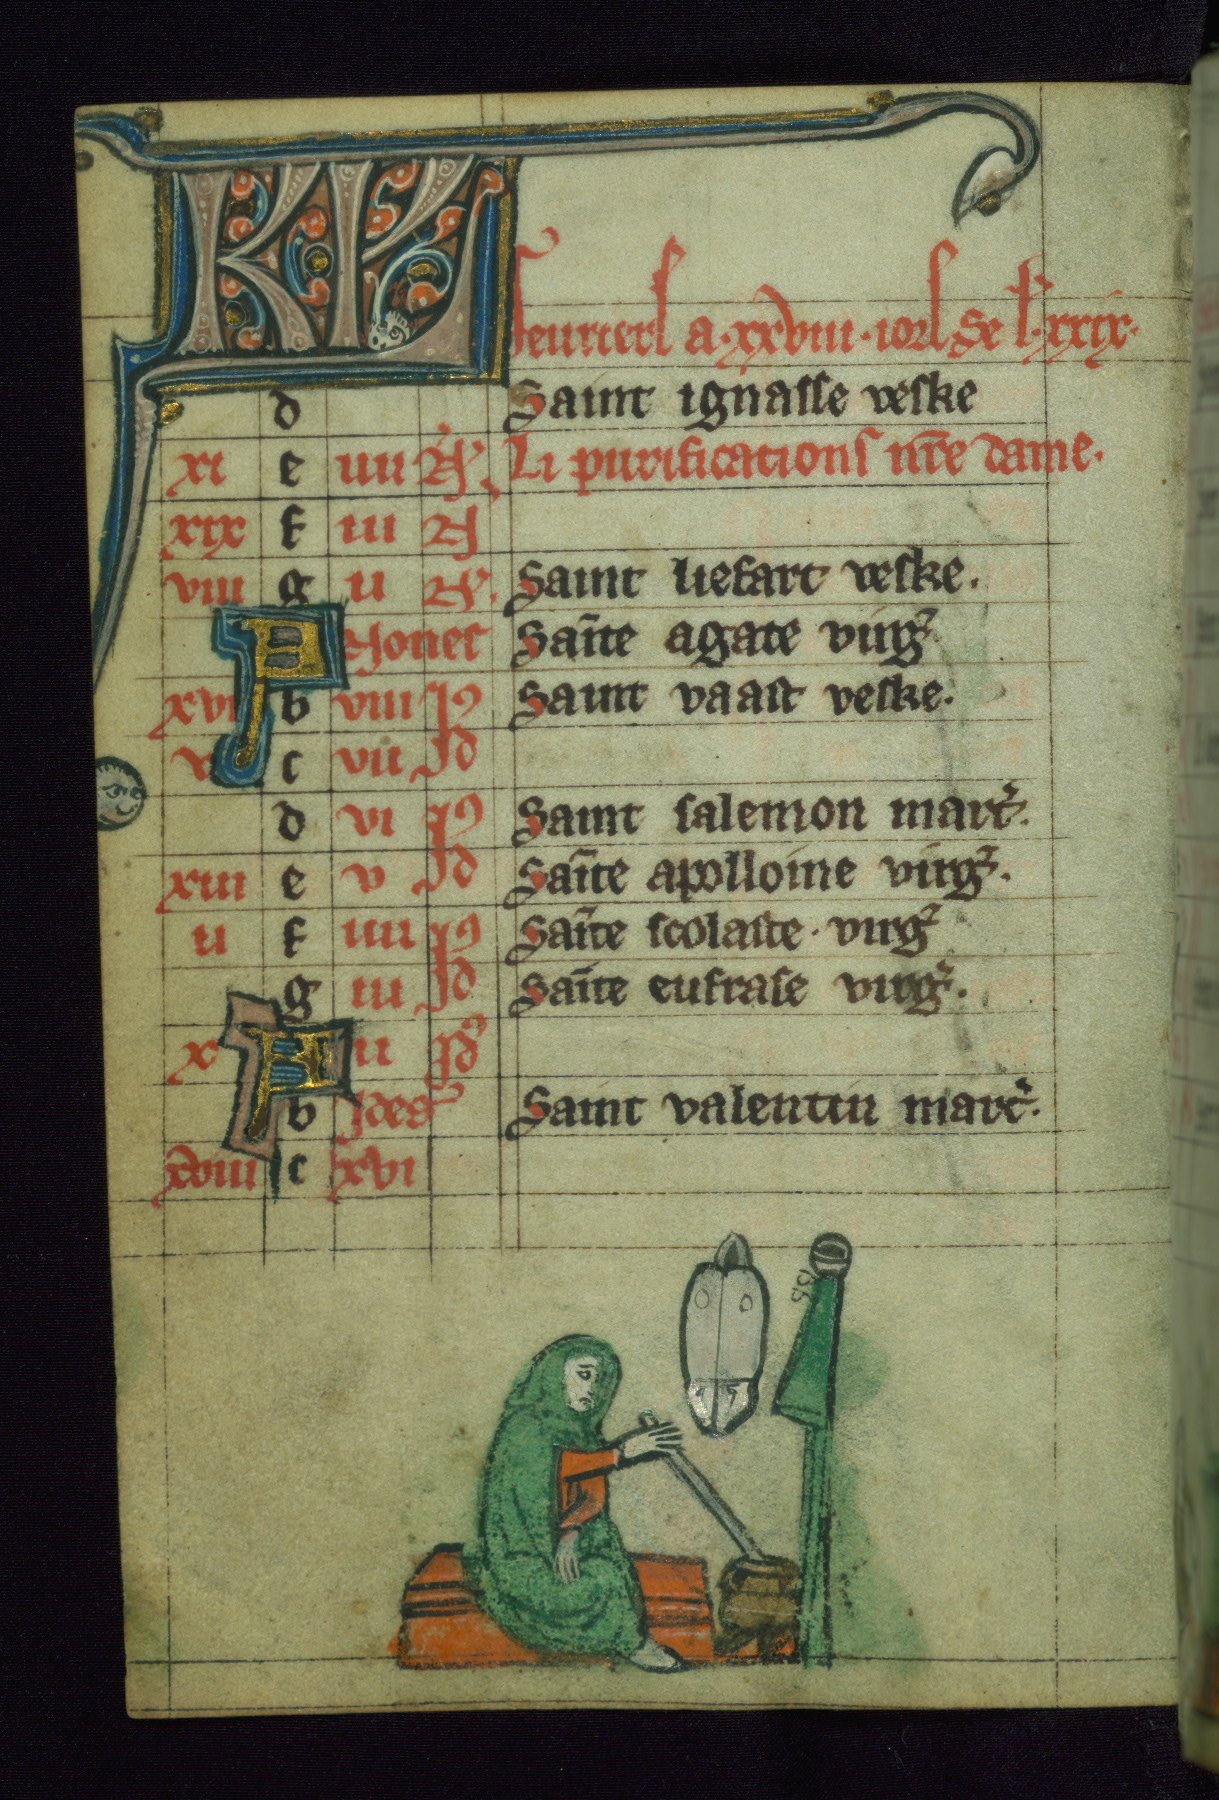 KL Feuriers a .xxviii. iors & e l. xxix.
d Saint ignasse veske
xi e iiii N̄. Li purifications nr̄e dame.
xix f iii N̄
viii g ii N̄. Saint liefart veske.
A Nones Sāīte agate virg̾
xvi b viii Id̾ Saint vaast veske.
v c vii Id
d vi Id̾ Saint salemon mart̾.
xiii e v Id Sāīte apolloine virg̾.
ii f iiii Id̾ Sāīte scolaste. virg̾
g iii Id Sāīte eufrase virg̾.
x A ii Id̾
b Ides Saint valentin mart̾.
xviii c xvi